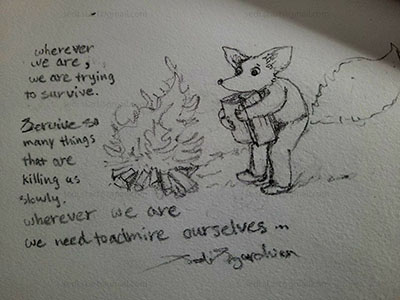 wherever
we are,
we are trying
to survive.
Servive so
many things
that are
killing us
slowly.
wherever we are
we need to admire ourselves ...